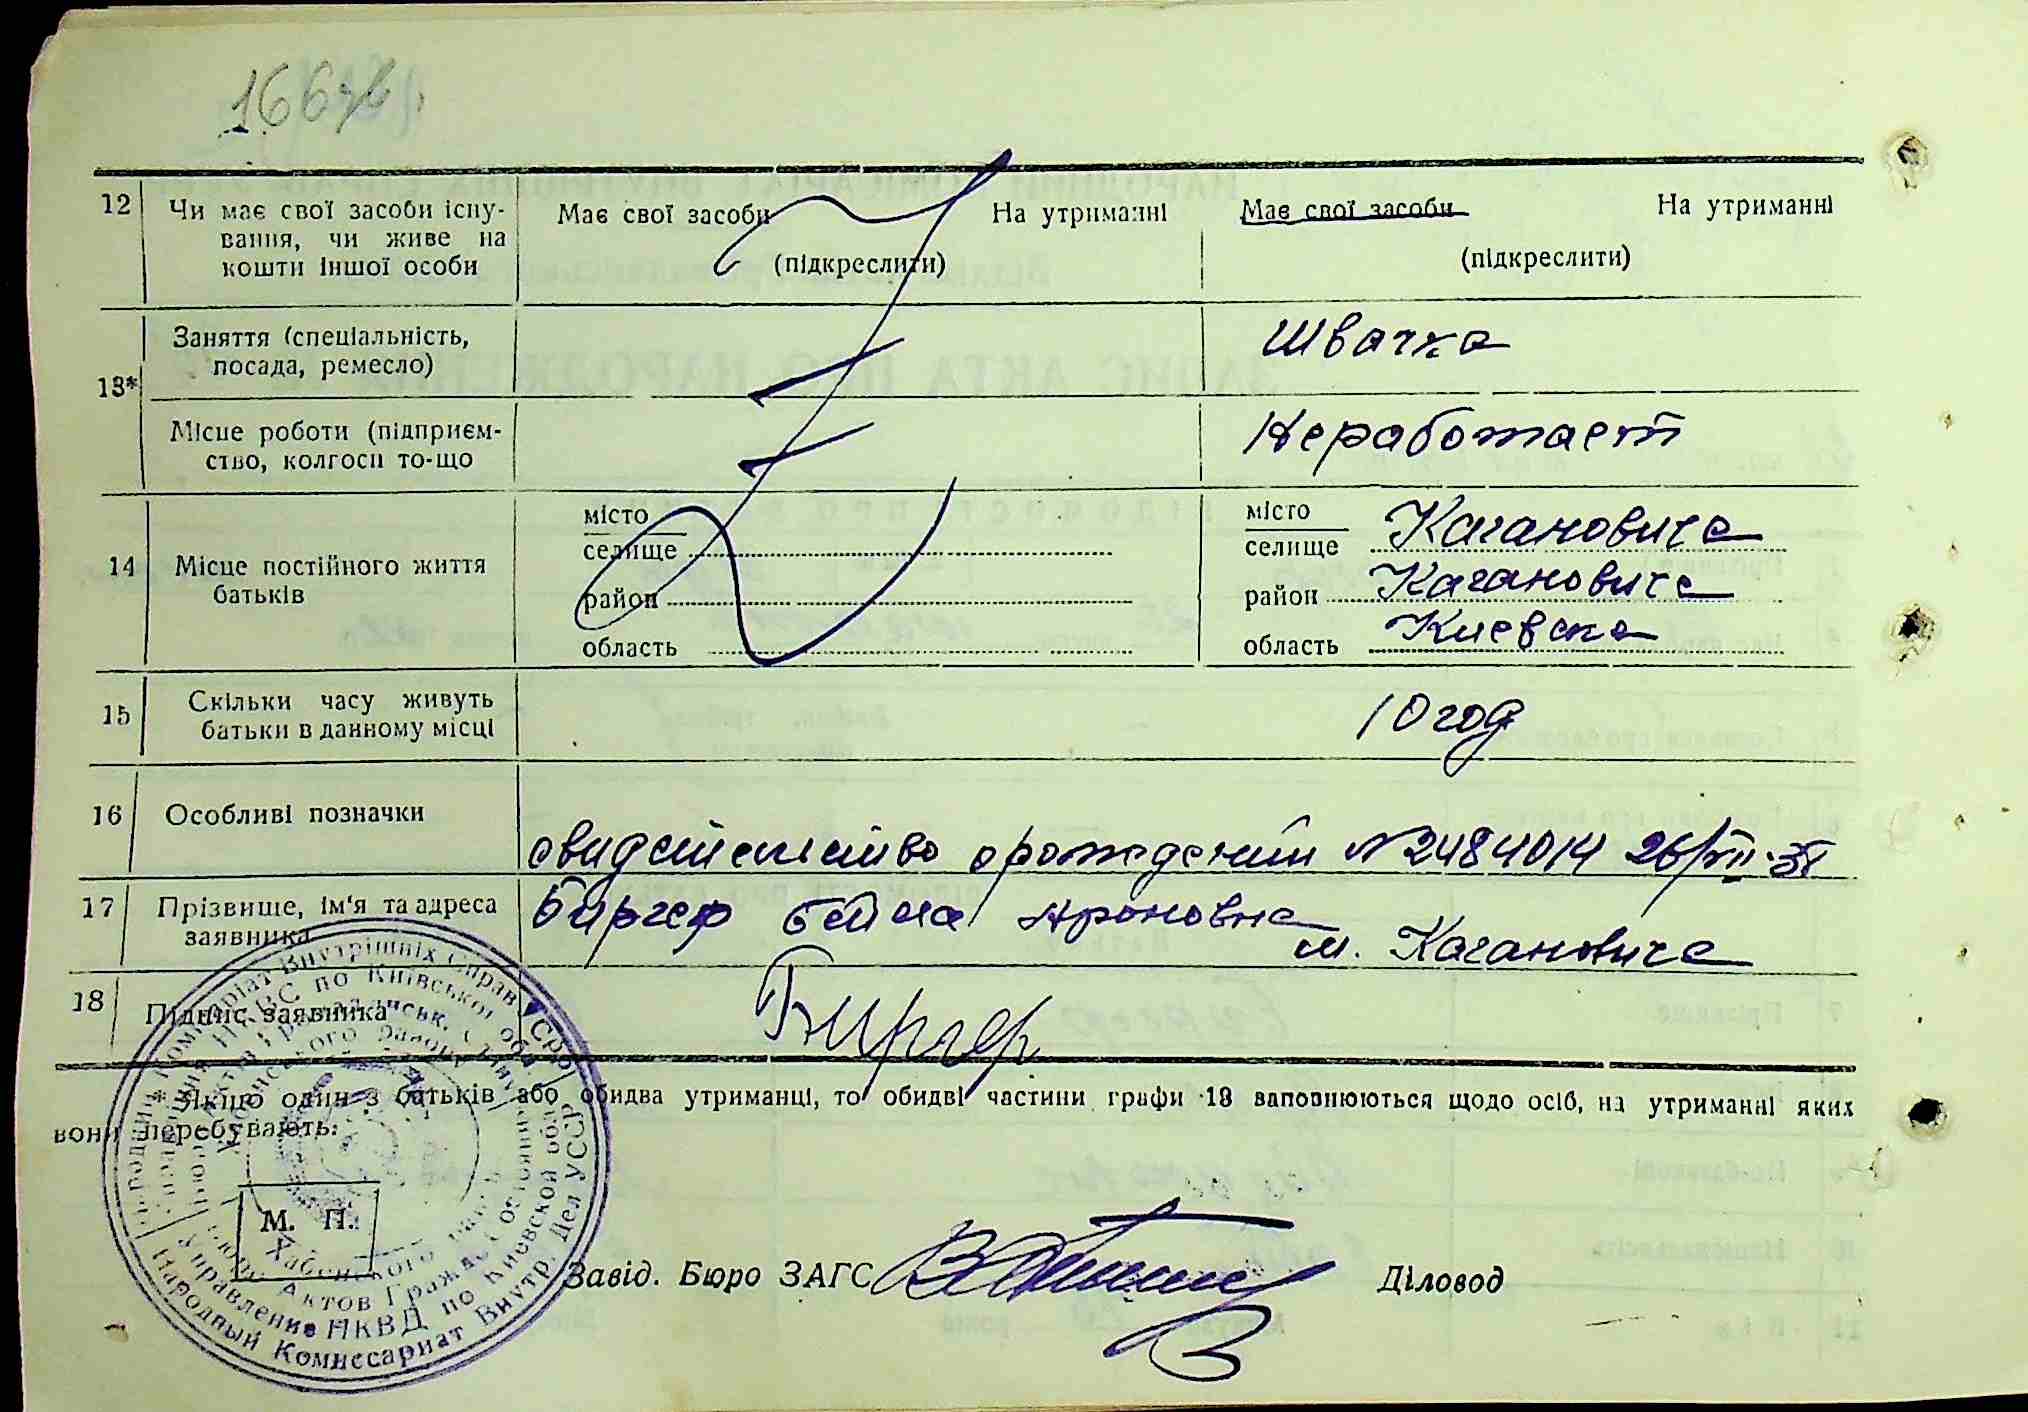 166
12
Чи має свої засоби існу-
вання, чи живе на
кошти іншої особи
Має свої засоби На утриманні
(підкреслити)
Має свої засоби На утриманні
(підкреслити)
13*
Заняття (спеціальність,
посада, ремесло)
Швачка
Місце роботи (підприєм-
ство, колгосп то-що
Неработает
14
Місце постійного життя
батьків
місто
селище
район
область
місто
селище Кагановича
район Кагановича
область Киевска
15
Скільки часу живуть
батьки в данному місці
10 год
16
Особливі позначки
свидетельство о рождении №2484014 26/VII-38
17
Прізвище, ім'я та адреса
заявника
Биргер Бейла Ароновна
м. Кагановича
18
Підпис заявника
Биргер
Якщо один з батьків або обидва утриманці, то обидві частини графи 13 заповнюються щодо осіб, на утриманні яких
вони перебувають.
М. П.
Завід. Бюро ЗАГС
Діловод
Народний Комісаріат Внутрішніх Справ УСРР
Управління НКВС по Київській обл.
Хабенского району
Хабенского района
Бюро Актов Граждс. Состояния
Управление НКВД по Киевской обл.
Народный Комиссариат Внутр. Дел УССР